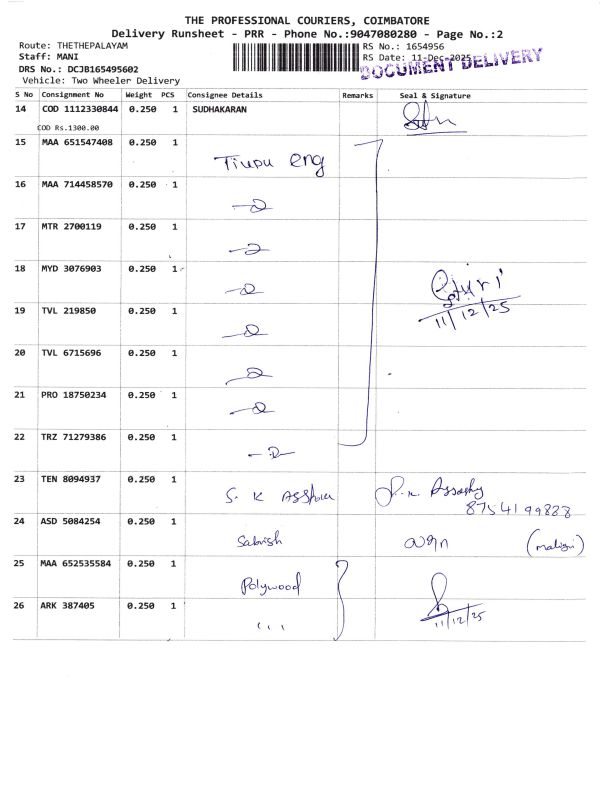 THE PROFESSIONAL COURIERS, COIMBATORE
Delivery Runsheet - PRR - Phone No.:9047080280 - Page No.:2
Route: THETHEPALAYAM
RS No.: 1654956
Staff: MANI
RS Date: 11-Dec-2025
DOCUMENT DELIVERY
DRS No.: DCJB165495602
Vehicle: Two Wheeler Delivery
S No Consignment No Weight PCS Consignee Details Remarks Seal & Signature
14 COD 1112330844 0.250 1 SUDHAKARAN
COD Rs.1300.00
15 MAA 651547408 0.250 1
Tiupu eng
16 MAA 714458570 0.250 1
17 MTR 2700119 0.250 1
18 MYD 3076903 0.250 1
11/12/25
19 TVL 219850 0.250 1
20 TVL 6715696 0.250 1
21 PRO 18750234 0.250 1
22 TRZ 71279386 0.250 1
23 TEN 8094937 0.250 1
S. K
8754199888
24 ASD 5084254 0.250 1
Sabrish
25 MAA 652535584 0.250 1
Polywood
26 ARK 387405 0.250 1
11/12/25